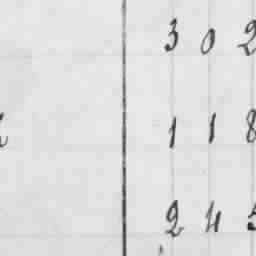 3 0 2
1 1 8
2 4 5